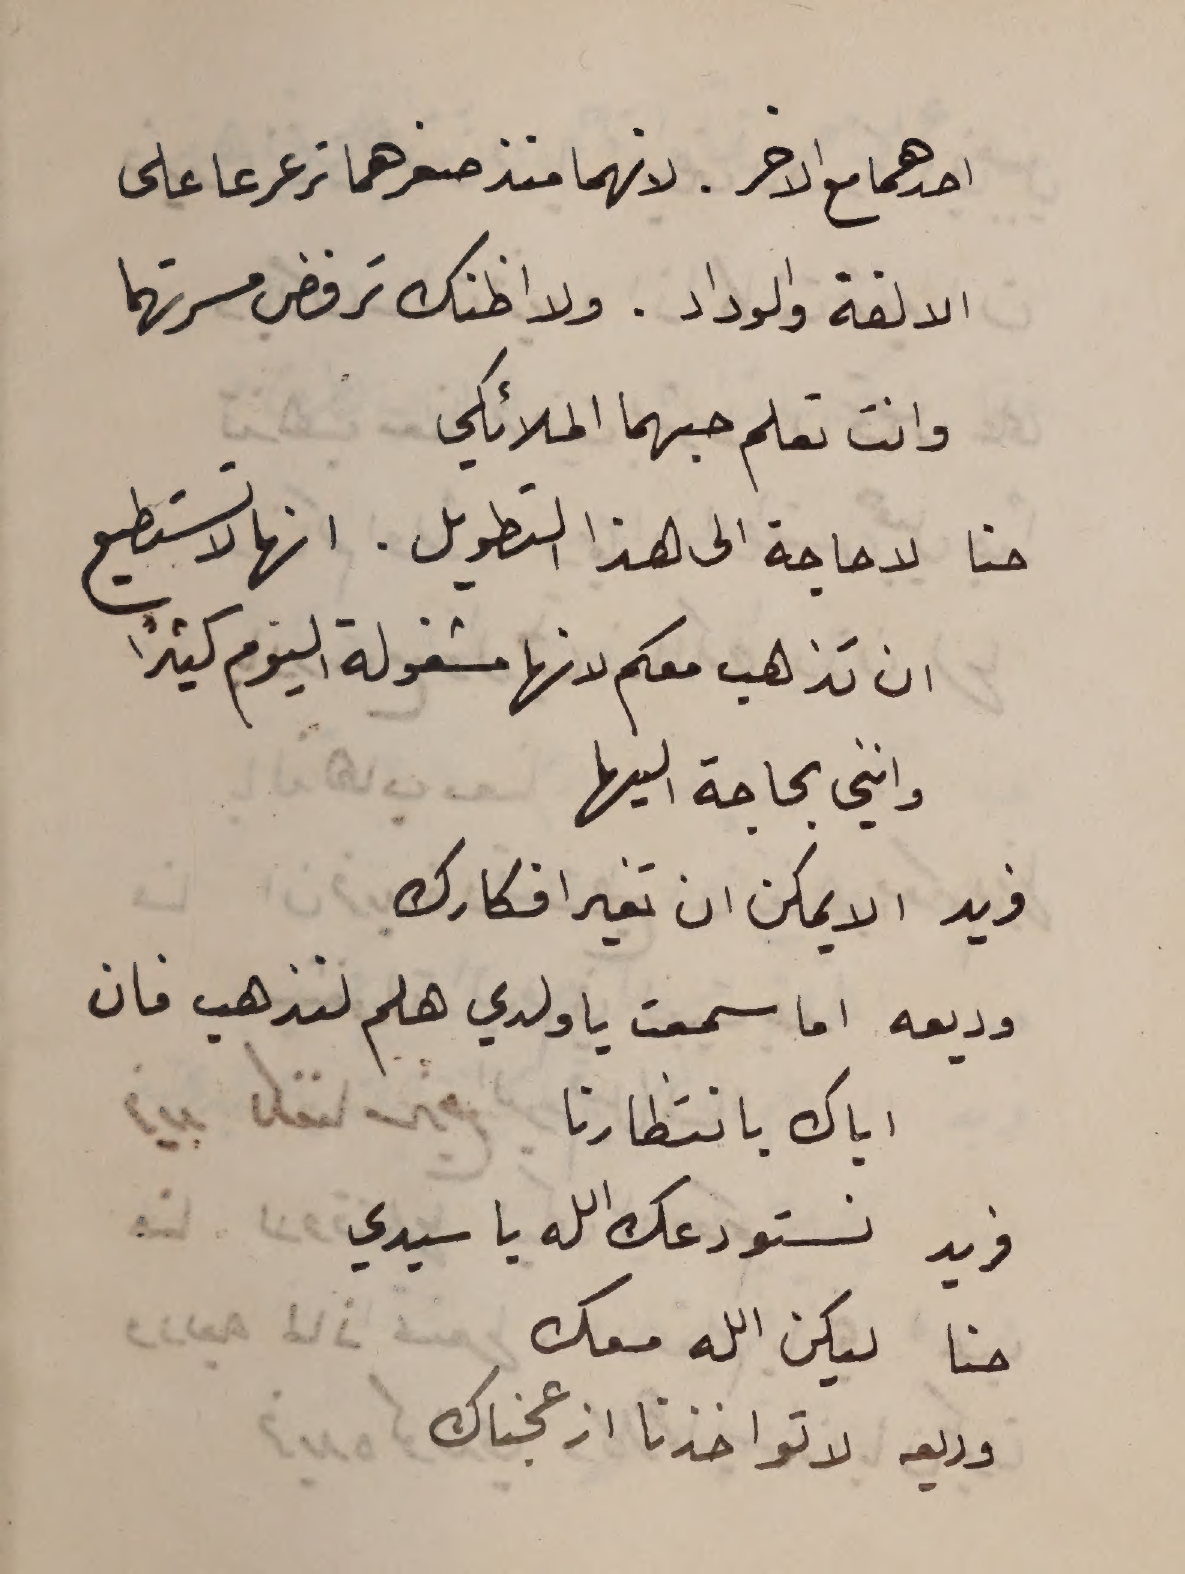 احدهما مع الاخر . لانهما منذ صغرهما ترعرعا على
الالفة والوداد . ولا اظنك ترفض مسرتهما
وانت تعلم حبهما الملائكي
حنا لا حاجة الى هذا التطويل . انها لا تستطيع
ان تذهب معكم لانها مشغولة اليوم كثيرًا
وانني بحاجة اليها
فريد الا يمكن ان تغير افكارك
وديعه اما سمعت يا ولدي هلم لنذهب فان
اباك بانتظارنا
فريد نستودعك الله يا سيدي
حنا ليكن الله معك
وديعه لا تواخذنا ازعجناك